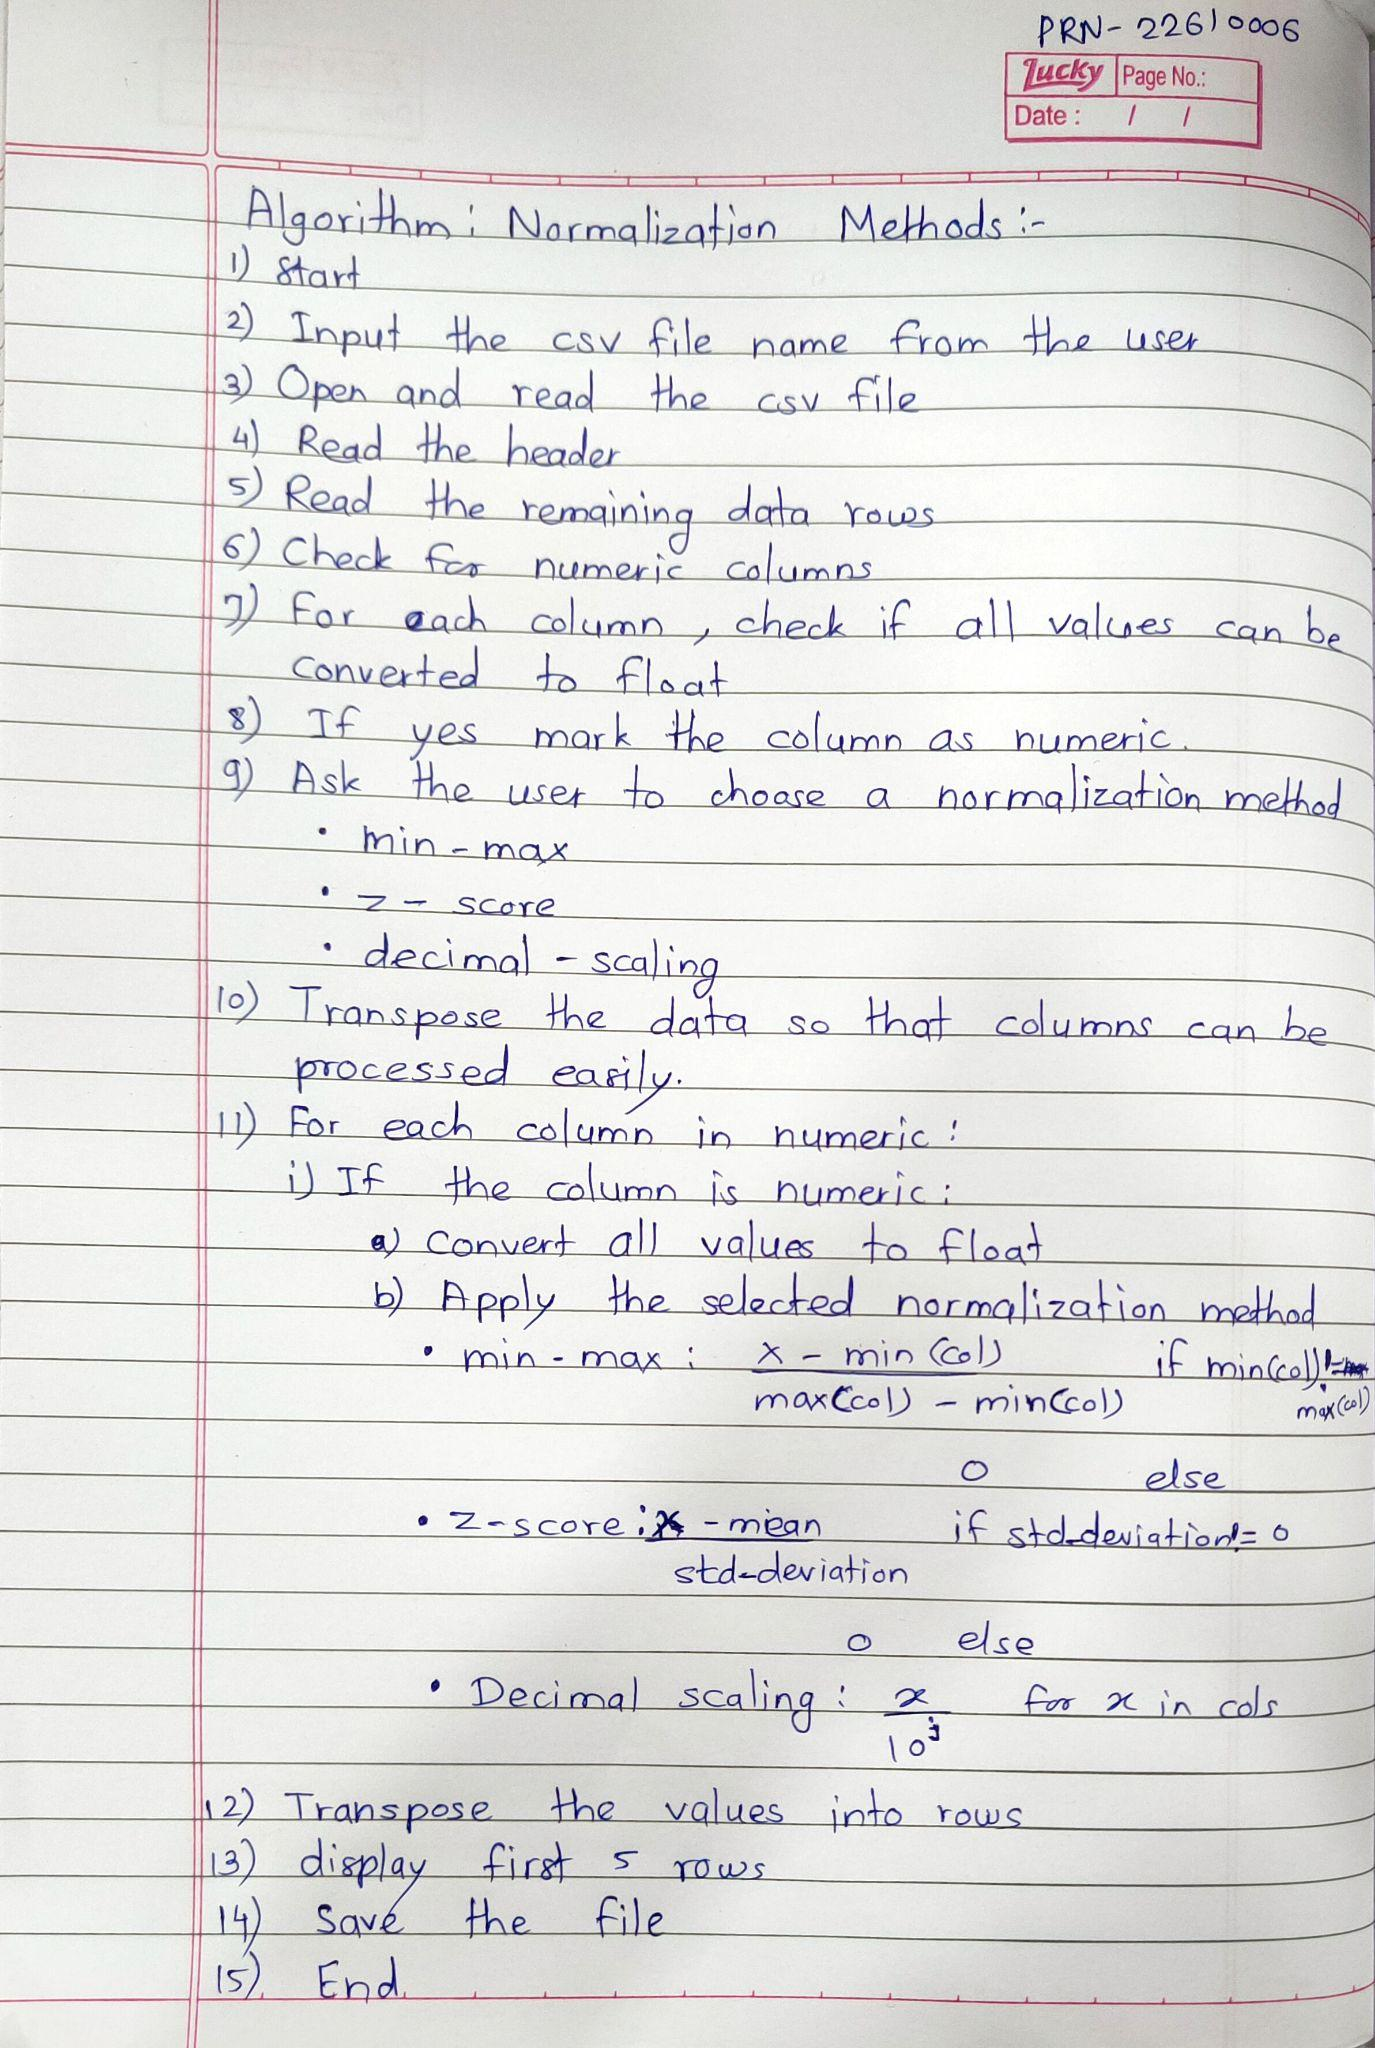 PRN- 22610006
Lucky Page No.:
Date : / /
Algorithm : Normalization Methods :-
1) Start
2) Input the csv file name from the user
3) Open and read the csv file
4) Read the header
5) Read the remaining data rows
6) Check for numeric columns
7) For each column, check if all values can be
converted to float
8) If yes mark the column as numeric.
9) Ask the user to choose a normalization method
• min - max
• z - score
• decimal - scaling
10) Transpose the data so that columns can be
processed easily.
11) For each column in numeric :
i) If the column is numeric :
a) convert all values to float
b) Apply the selected normalization method
• min - max : x - min (col) if min(col) !=
max(col) - min(col) max(col)
0 else
• z-score : x - mean if std-deviation != 0
std-deviation
0 else
• Decimal scaling : x for x in cols
10^j
12) Transpose the values into rows
13) display first 5 rows
14) Save the file
15) End.